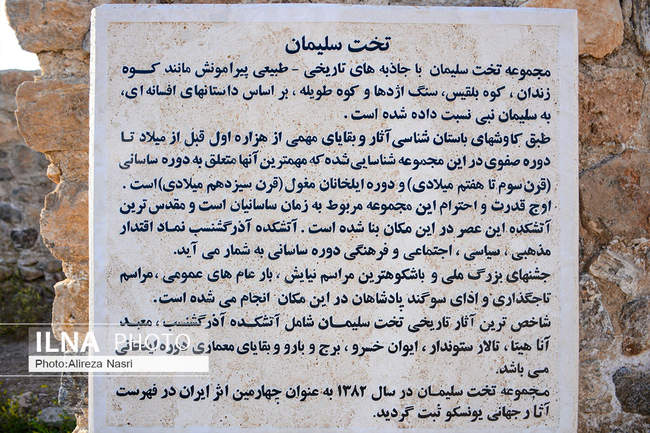 تخت سلیمان
مجموعه تخت سلیمان با جاذبه های تاریخی - طبیعی پیرامونش مانند کوه
زندان ، کوه بلقیس، سنگ اژدها و کوه طویله ، بر اساس داستانهای افسانه ای،
به سلیمان نبی نسبت داده شده است .
طبق کاوشهای باستان شناسی آثار و بقایای مهمی از هزاره اول قبل از میلاد تا
دوره صفوی در این مجموعه شناسایی شده که مهمترین آنها متعلق به دوره ساسانی
(قرن سوم تا هفتم میلادی) و دوره ایلخانان مغول (قرن سیزدهم میلادی) است .
اوج قدرت و احترام این مجموعه مربوط به زمان ساسانیان است و مقدس ترین
آتشکده این عصر در این مکان بنا شده است . آتشکده آذرگشنسب نماد اقتدار
مذهبی ، سیاسی ، اجتماعی و فرهنگی دوره ساسانی به شمار می آید.
جشنهای بزرگ ملی و باشکوهترین مراسم نیایش ، بار عام های عمومی ، مراسم
تاجگذاری و ادای سوگند پادشاهان در این مکان انجام می شده است.
شاخص ترین آثار تاریخی تخت سلیمان شامل آتشکده آذرگشنسب ، معبد
آنا هیتا، تالار ستوندار ، ایوان خسرو ، برج و بارو و بقایای معماری دوره ایلخانی
می باشد.
مجموعه تخت سلیمان در سال ۱۳۸۲ به عنوان چهارمین اثر ایران در فهرست
آثار جهانی یونسکو ثبت گردید.
ILNA PHOTO
Photo:Alireza Nasri